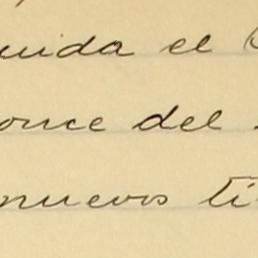 uida el
once del
nuevos ti